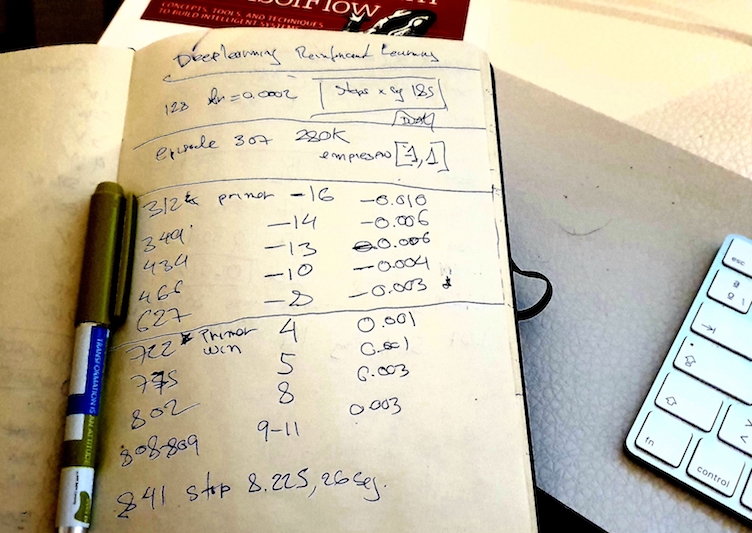 TENSORFLOW
CONCEPTS, TOOLS, AND TECHNIQUES
TO BUILD INTELLIGENT SYSTEMS
Deep learning Reinforcement Learning
128 lr=0.0002 steps x sg 185
episode 307 280K
empiezan [-1,1]
312k primer -16 -0.010
349 -14 -0.006
434 -13 -0.006
466 -10 -0.004
627 -8 -0.003
722 Primer win 4 0.001
775 5 0.001
802 8 0.003
808-809 9-11 0.003
841 stop 8.225,26 seg.
TRANSFORMATION IS AN ATTITUDE
esc
fn
control